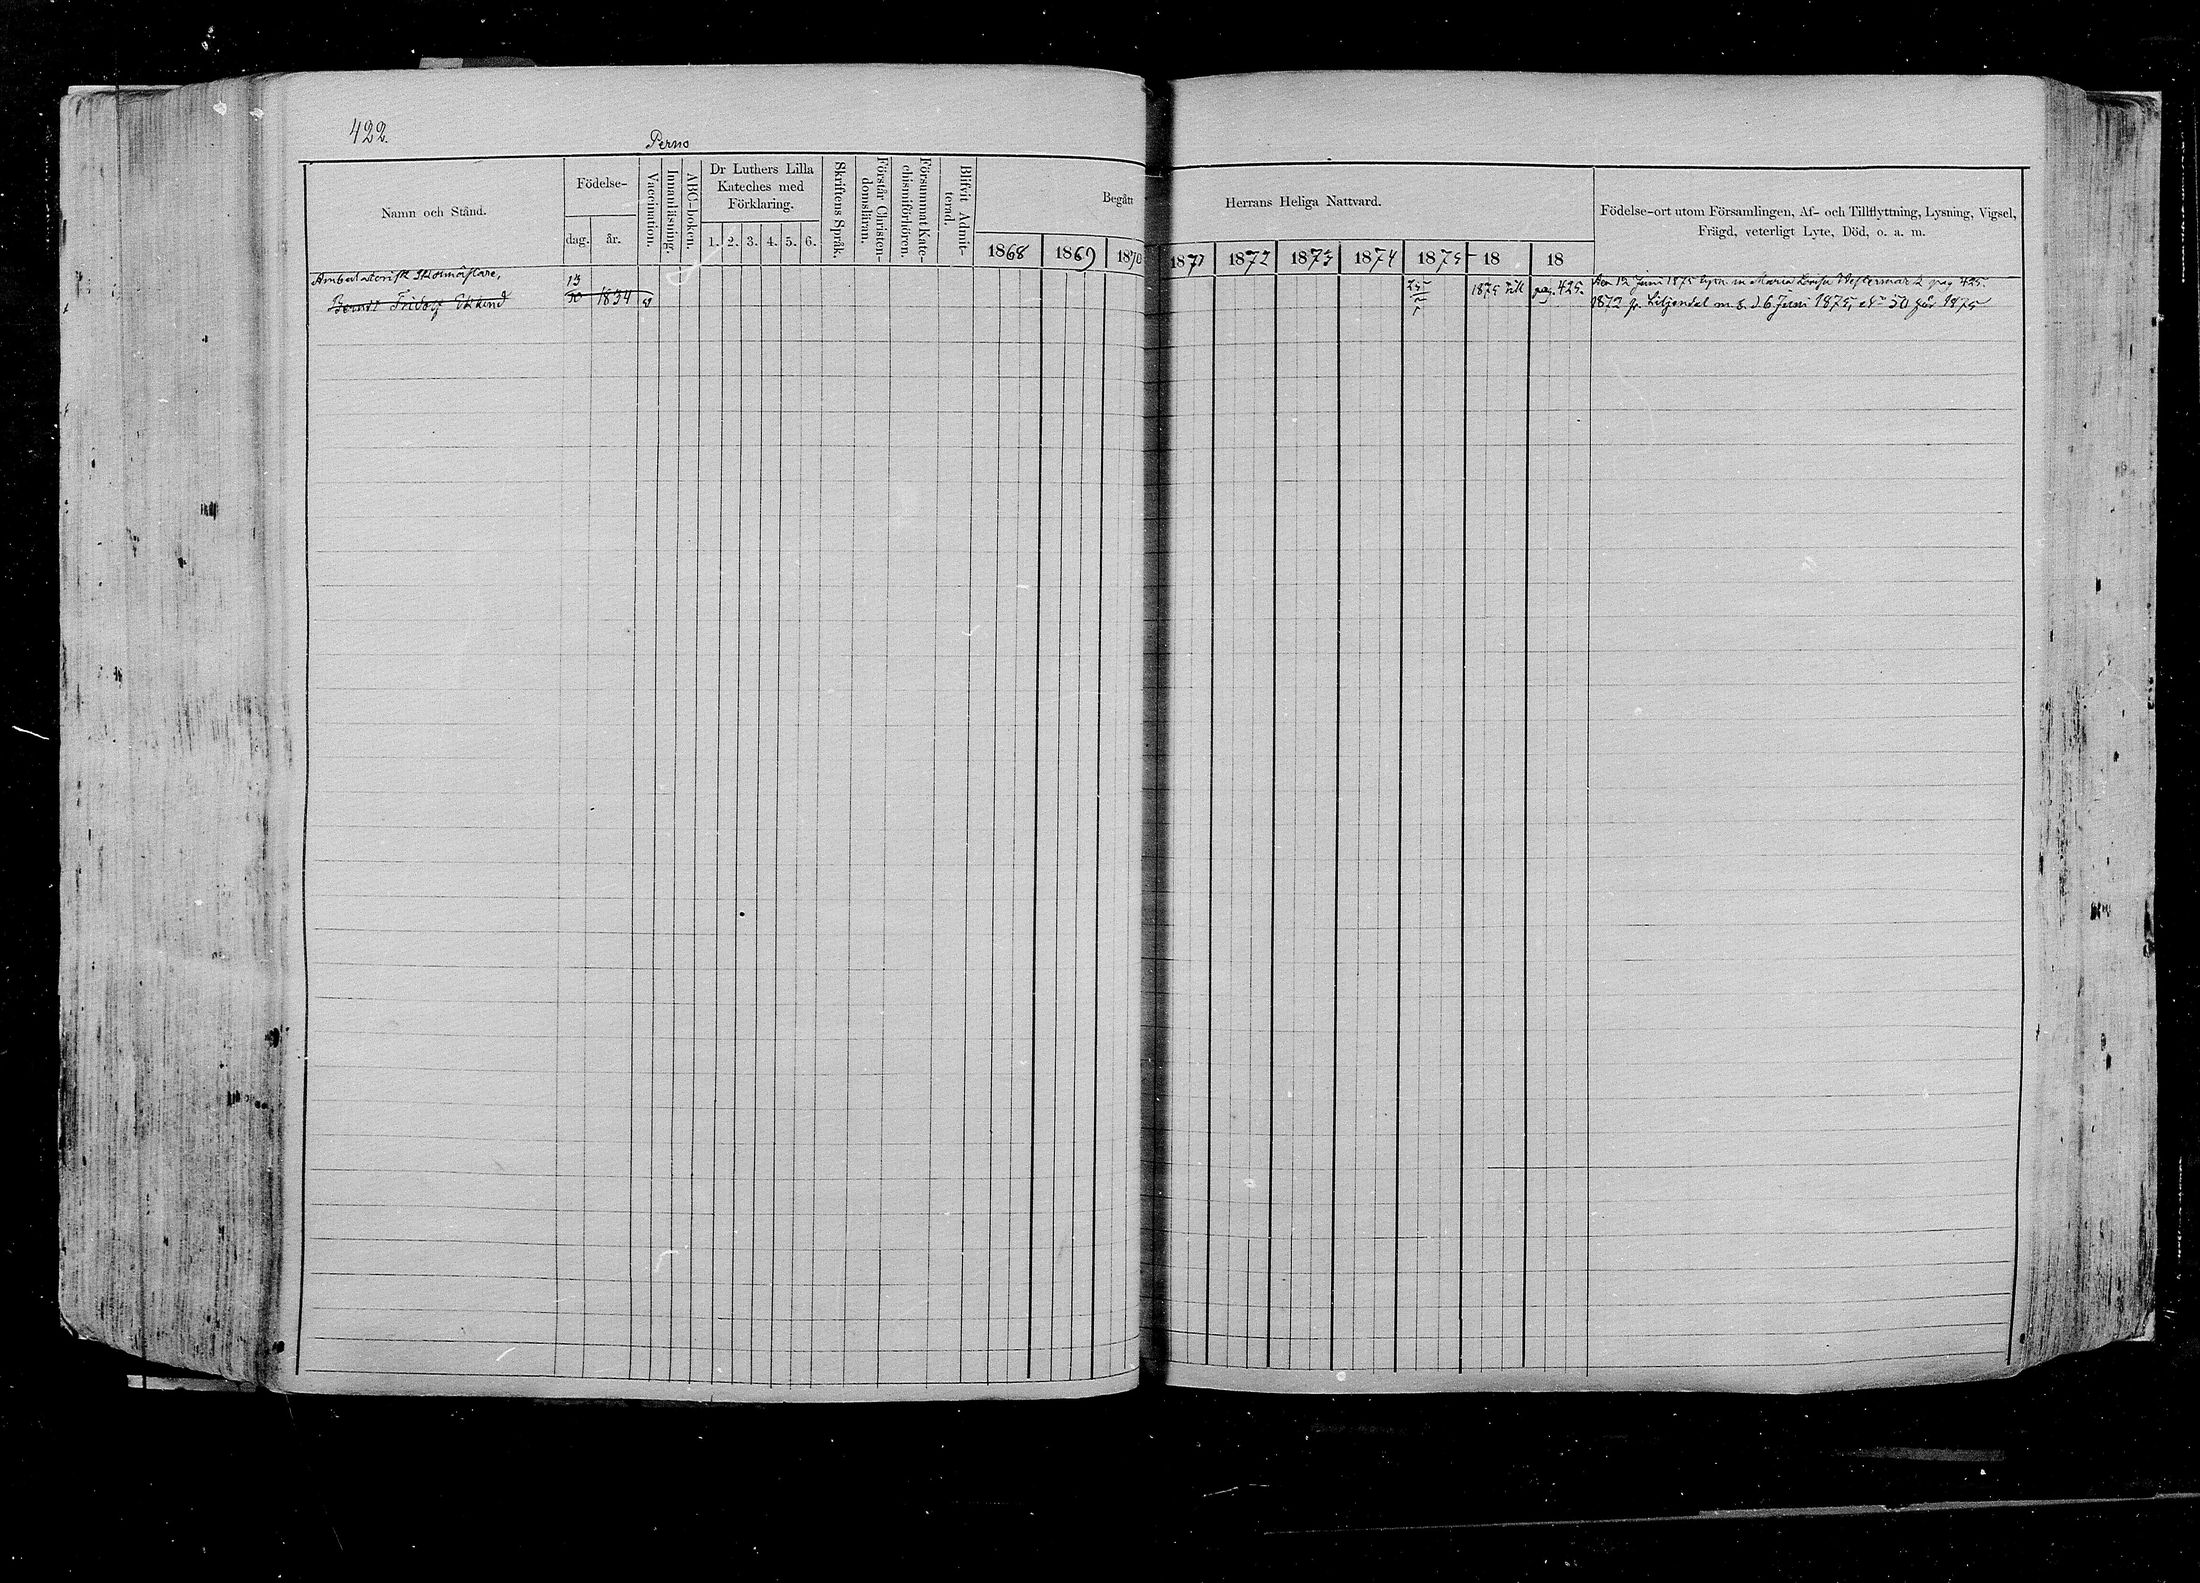 422.
Perno
Namn och Stånd.
Födelse-
dag. år.
Vaccination.
Innanläsning.
ABC-boken.
Dr Luthers Lilla
Kateches med
Förklaring.
1. 2. 3. 4. 5. 6.
Skriftens Språk.
Förstår Christen-
domsläran.
Försummat Kate-
chismiförhören.
Blifvit Admit-
terad.
Begått
Herrans Heliga Nattvard.
1868 1869 1870
1871 1872 1873 1874 1875 18 18
Födelse-ort utom Församlingen, Af- och Tillflyttning, Lysning, Vigsel,
Frägd, veterligt Lyte, Död, o. a. m.
Ambulatorisk Skolmästare,
Berndt Fridolf Eklund
13
10 1834 v
1875 till pag. 425.
Den 12 Juni 1875 lysn. m Maria Lovisa Westermark pag 425.
1872 fr. Liljendal m. b. d 6 Juni 1875, No 50 för 1875